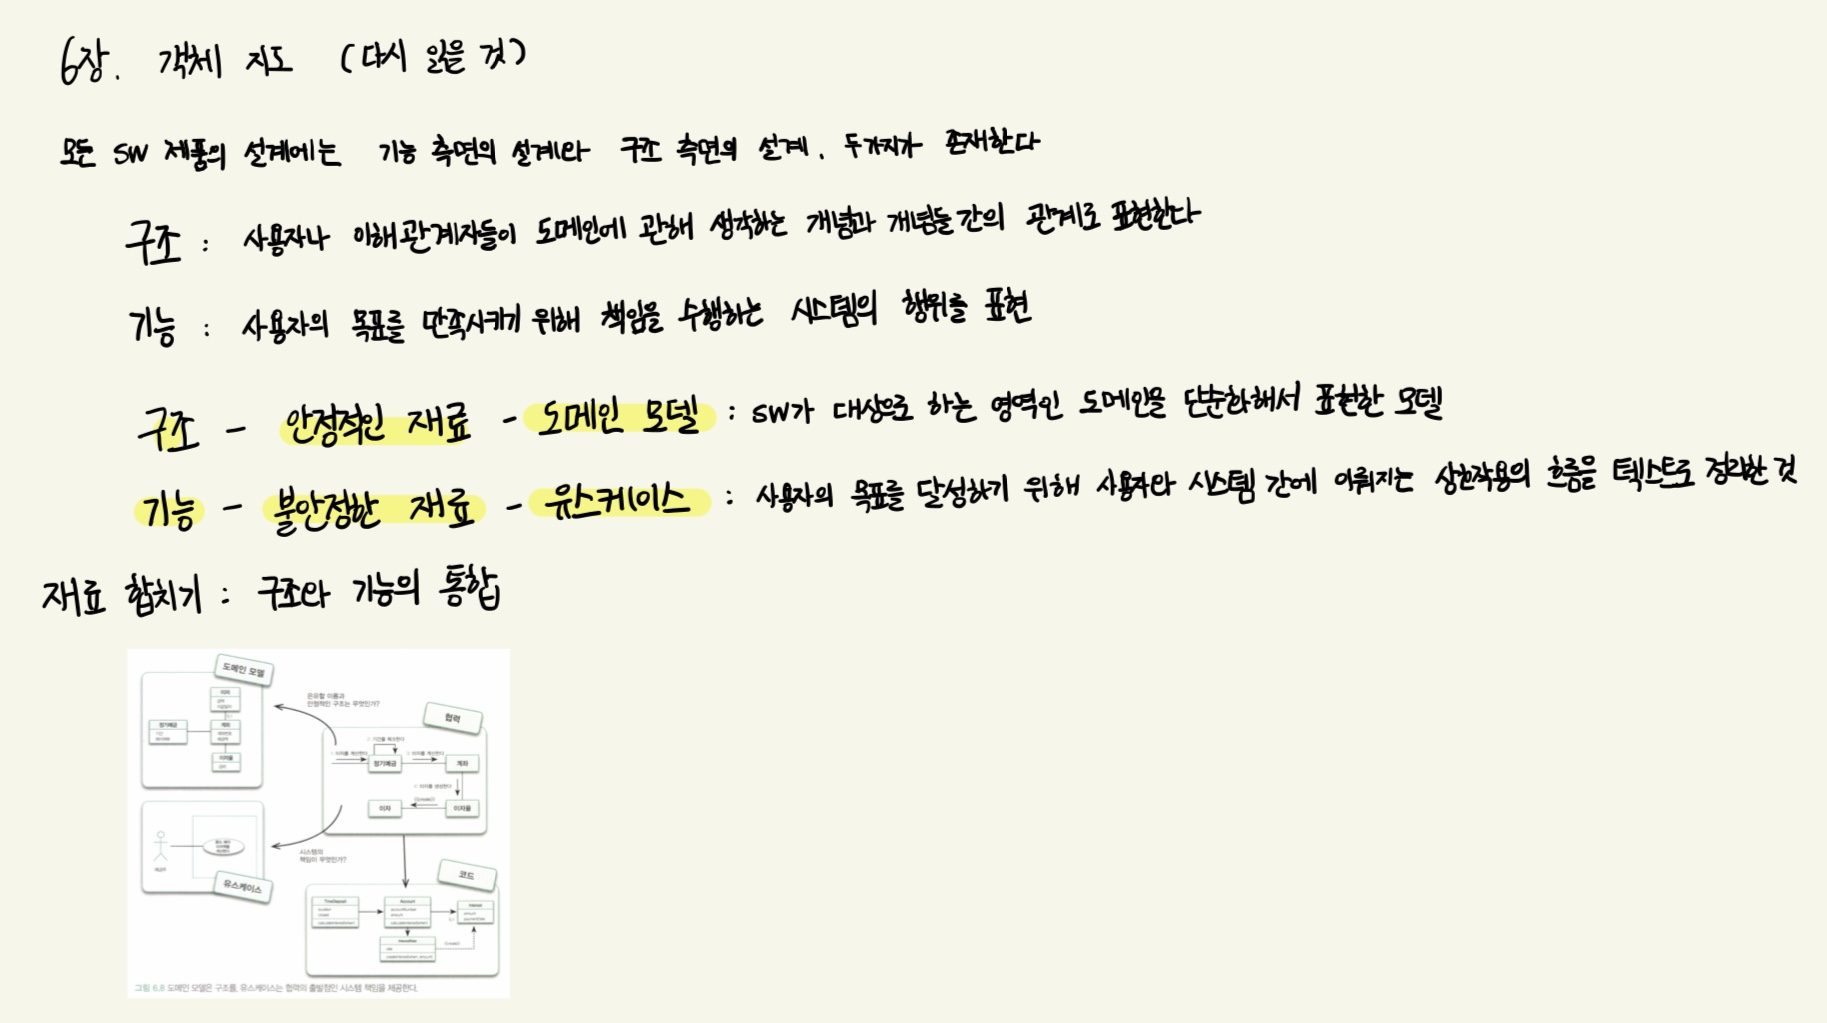 6장. 객체 지도 (다시 읽을 것)
모든 SW 제품의 설계에는 기능 측면의 설계와 구조 측면의 설계, 두가지가 존재한다
구조 : 사용자나 이해관계자들이 도메인에 관해 생각하는 개념과 개념들간의 관계로 표현한다
기능 : 사용자의 목표를 만족시키기 위해 책임을 수행하는 시스템의 행위를 표현
구조 - 안정적인 재료 - 도메인 모델 : SW가 대상으로 하는 영역인 도메인을 단순화해서 표현한 모델
기능 - 불안정한 재료 - 유스케이스 : 사용자의 목표를 달성하기 위해 사용자와 시스템 간에 이뤄지는 상호작용의 흐름을 텍스트로 정리한 것
재료 합치기 : 구조와 기능의 통합
도메인 모델
이자
정기예금
기간
계좌
이자율
은유할 이름과
안정적인 구조는 무엇인가?
협력
1: 이자를 계산한다
2: 기간을 체크한다
3: 이자를 계산한다
정기예금
계좌
4: 이자를 생성한다
이자
이자율
시스템의
책임이 무엇인가?
유스케이스
코드
TimeDeposit
Account
accountNumber
amount
Interest
amount
InterestRate
rate
그림 6.8 도메인 모델은 구조를, 유스케이스는 협력의 출발점인 시스템 책임을 제공한다.